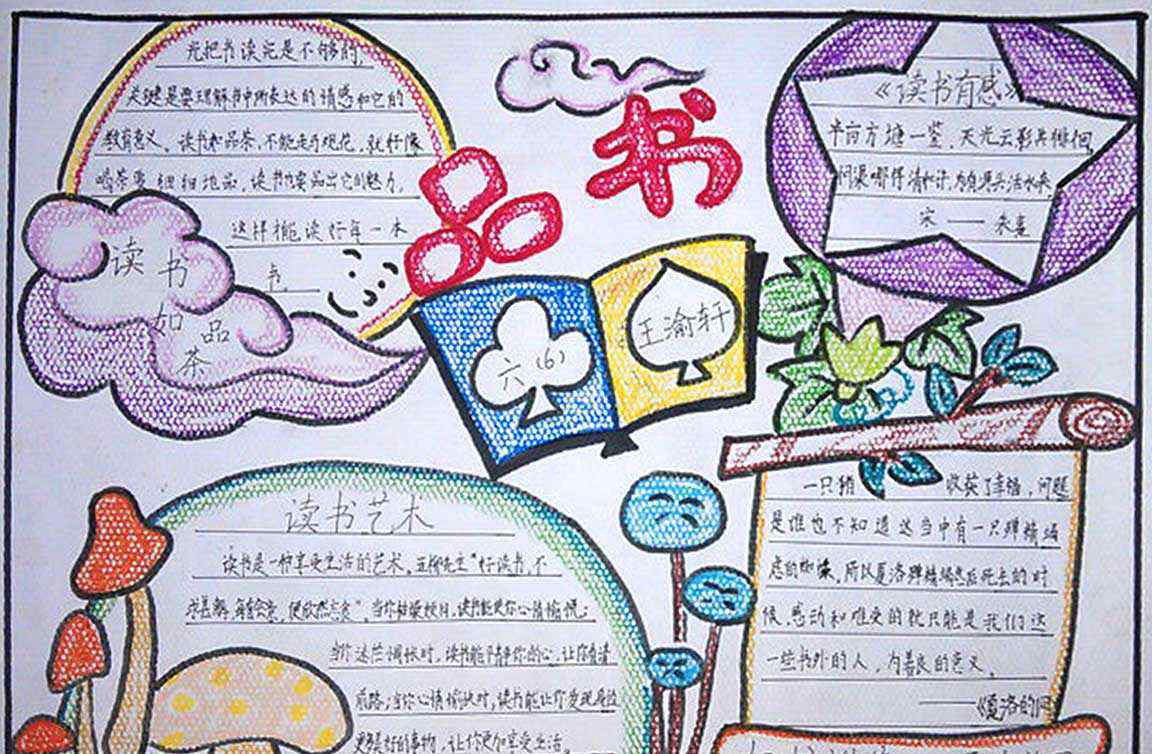 光把书读完是不够的,
关键是要理解书中所表达的情感和它的
教育意义。读书如品茶,不能走马观花,就好像
喝茶要细细地品,读书也要品出它的魅力。
这样才能读好每一本
书
读书
如品
茶
品书
六(6)
王渝轩
《读书有感》
半亩方塘一鉴,天光云影共徘徊。
问渠哪得清如许,为有源头活水来。
宋——朱熹
读书艺术
读书是一种享受生活的艺术。五柳先生“好读书,不
求甚解,每有会意,便欣然忘食”。当你枯燥烦闷,读书能使你心情愉悦;
当你迷茫惆怅时,读书能平静你的心,让你看清
前路;当你心情愉快时,读书能让你发现身边
更美好的事物,让你更加享受生活。
一只猪 收获了幸福,问题
是谁也不知道这当中有一只殚精竭
虑的蜘蛛。所以夏洛殚精竭虑后死去的时
候,感动和难受的就只能是我们这
一些书外的人,为善良的意义。
——《夏洛的网